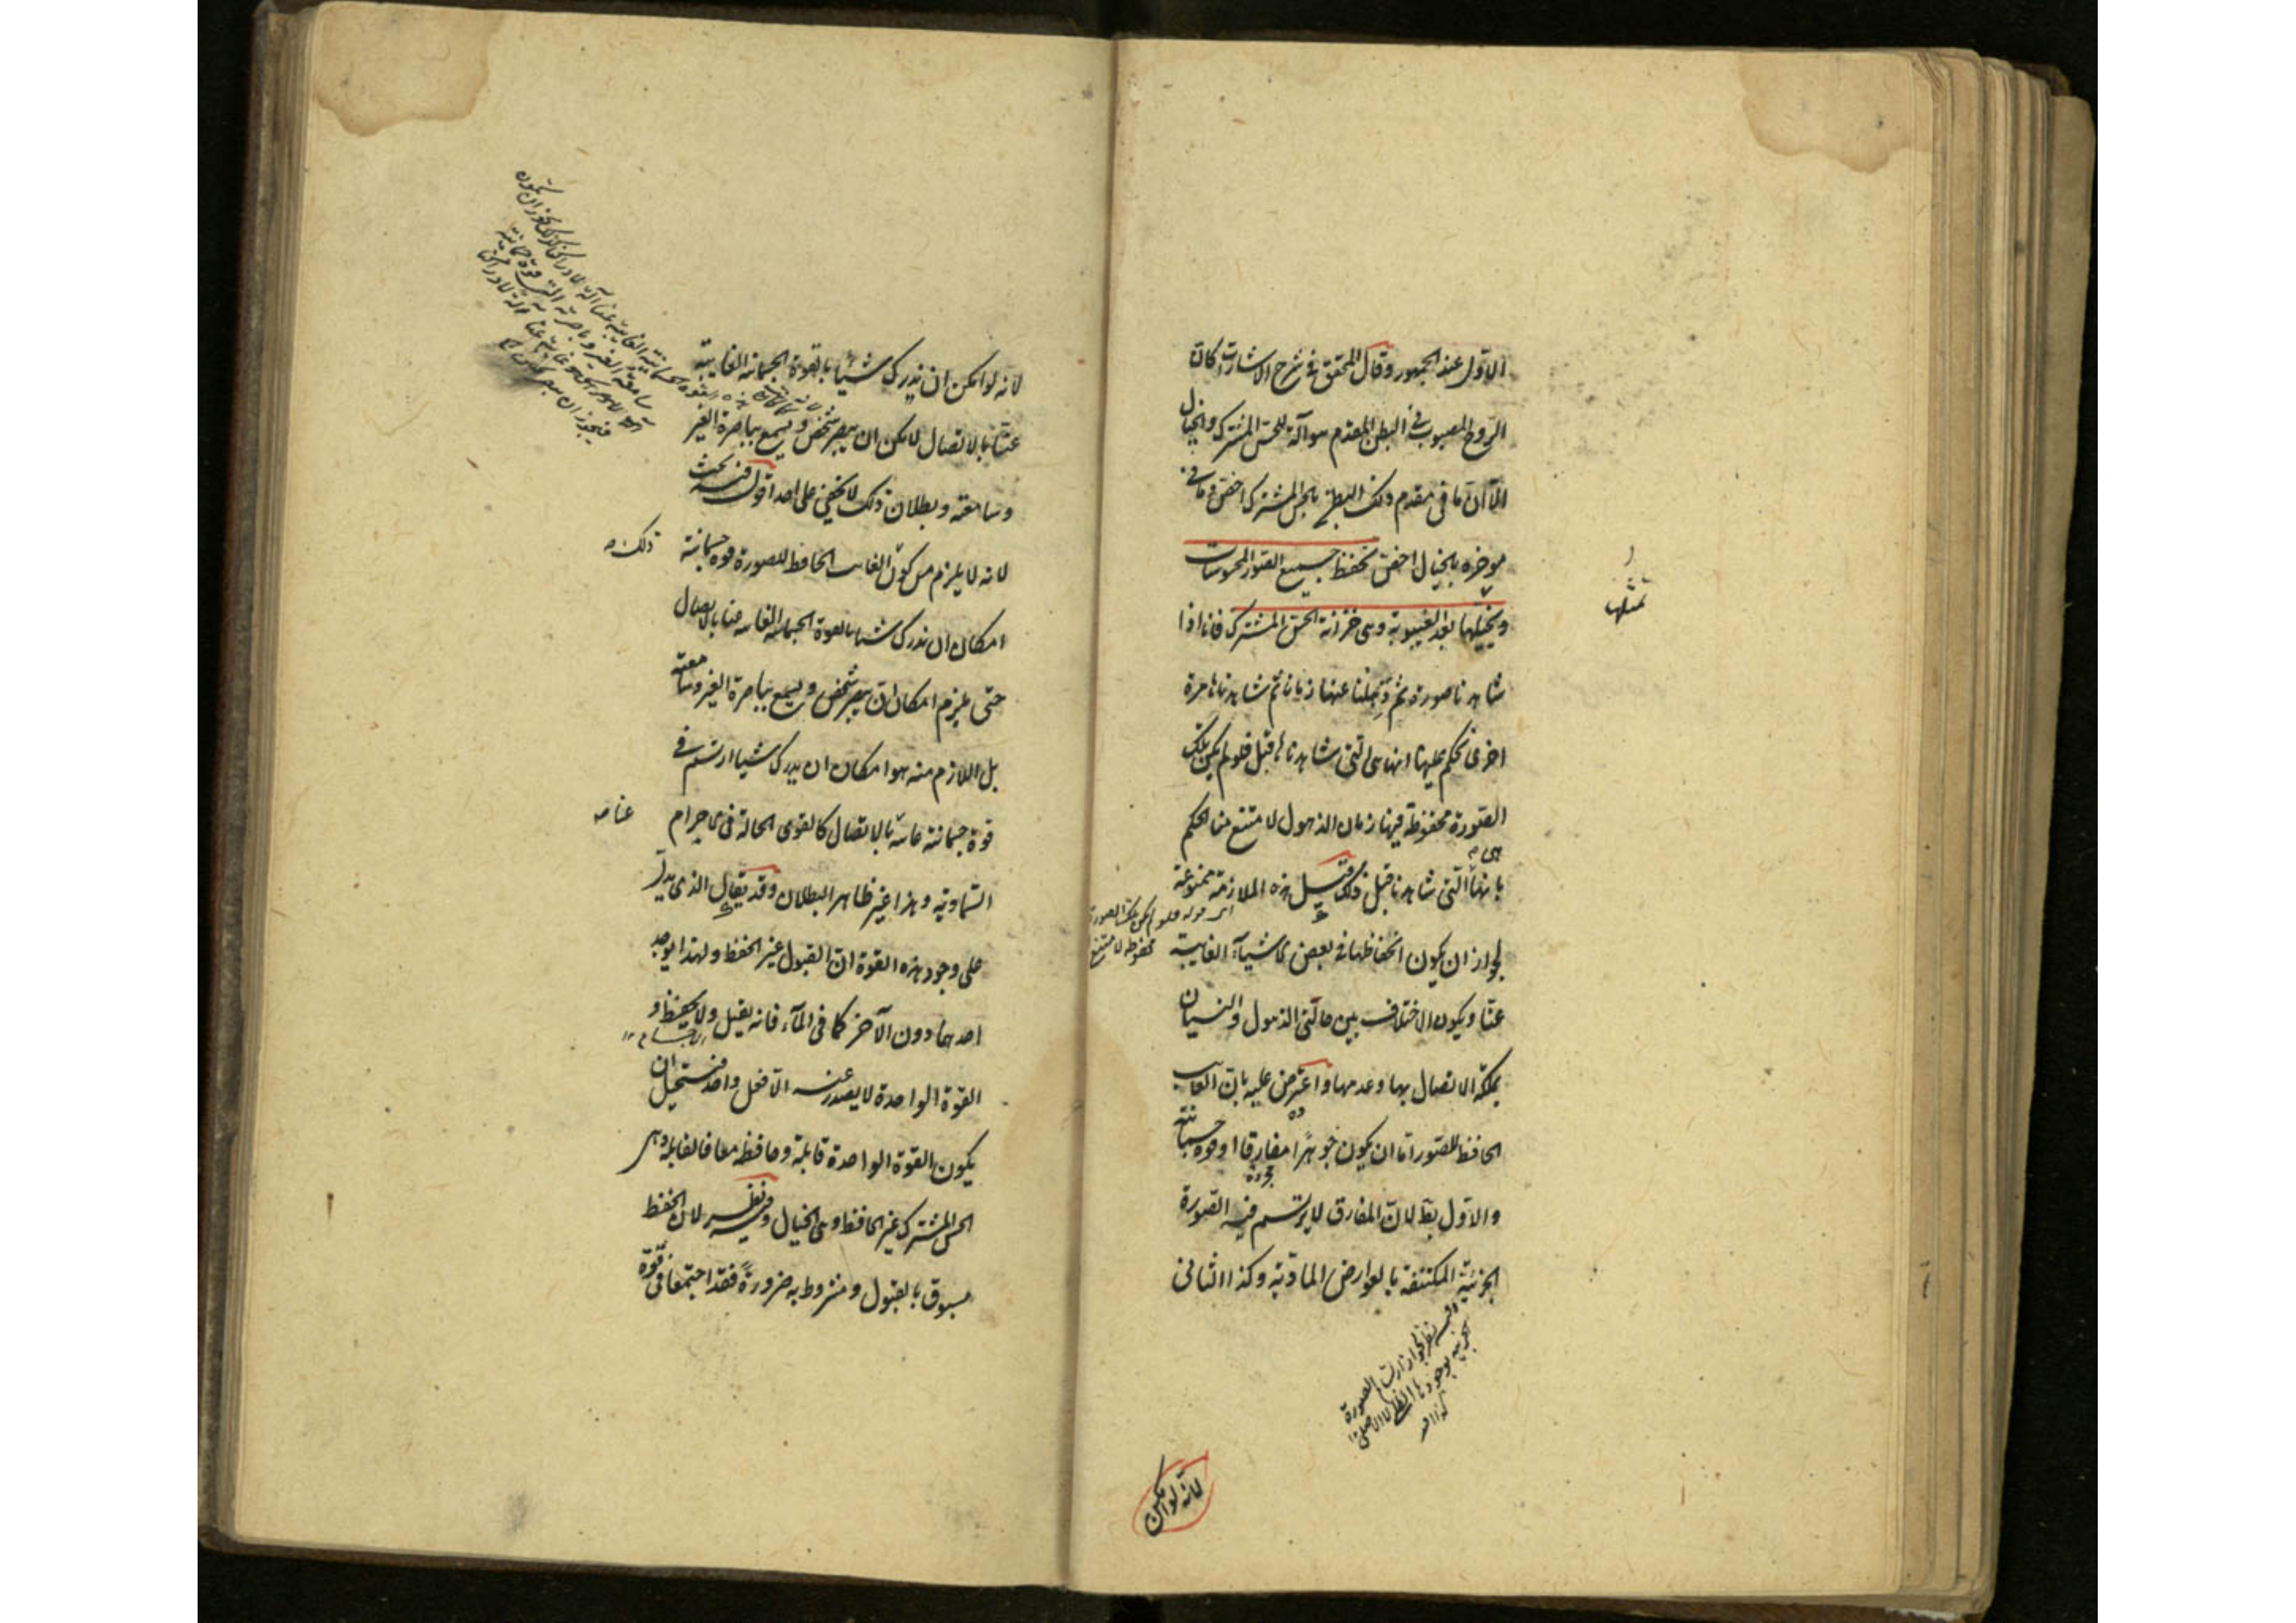 الاول عند الجمهور وقال المحقق في شرح الاشارات كان
الروح المصبوب في البطن المقدم هو آلة للحس المشترك والخيال
الا ان ما في مقدم ذلك البطن بالحس المشترك اخص وما في
موخره بالخيال اخص تحفظ جميع الصور المحسوسات
وتخيلها بعد الغيبوبة وهي خزانة الحس المشترك فانا اذا
شاهدنا صورة ثم ذهلنا عنها زمانا ثم شاهدناها مرة
اخرى نحكم عليها انها هي التي شاهدناها قبل فلو لم يكن تلك
الصورة محفوظة فينا زمان الذهول لامتنع منا الحكم
بانها هي التي شاهدنا قبل ذلك قيل هذه الملازمة ممنوعة
اى قوله فلو لم يكن تلك الصورة
محفوظة لامتنع
لجواز ان يكون انحفاظها في بعض الاشياء الغايبة
عنا ويكون الاختلاف بين حالتي الذهول والنسيان
بملكة الاتصال بها وعدمها واعترض عليه بان الغايب
الحافظ للصور اما ان يكون جوهرا مفارقا او قوة جسمانية
مجردة
والاول بط لان المفارق لا يرتسم فيه الصورة
الجزئية المكتنفة بالعوارض المادية وكذا الثاني
فيه نظر لجواز ارتسام الصورة
الجزئية بوجودها الظلي لا الاصلي
لانه لو امكن
لانه لو امكن ان ندرك شيئا بالقوة الجسمانية الغايبة
عنا بالاتصال لامكن ان يبصر شخص ويسمع بباصرة الغير
وسامعته وبطلان ذلك لا يخفى على احد اقول فيه بحث
لانه لا يلزم من كون الغايب الحافظ للصورة قوة جسمانية
ذلك
امكان ان ندرك شيئا بالقوة الجسمانية الغايبة عنا بالاتصال
حتى يلزم امكان ان يبصر شخص ويسمع بباصرة الغير وسامعته
بل اللازم منه هو امكان ان يدرك شيئا ارتسم في
قوة جسمانية غائبة بالاتصال كالقوى الحالة في الاجرام
عنا
السماوية وهذا غير ظاهر البطلان وقد يقال الذي يدل
على وجود هذه القوة ان القبول غير الحفظ ولهذا يوجد
احدهما دون الآخر كما في الماء فانه يقبل ولا يحفظ و
القوة الواحدة لا يصدر عنه الا فعل واحد فيستحيل ان
يكون القوة الواحدة قابلة وحافظة معا فالقابلة وهي
الحس المشترك غير الحافظ وهي الخيال وفيه نظر لان الحفظ
مسبوق بالقبول ومشروط به ضرورة فقد اجتمعا في قوة